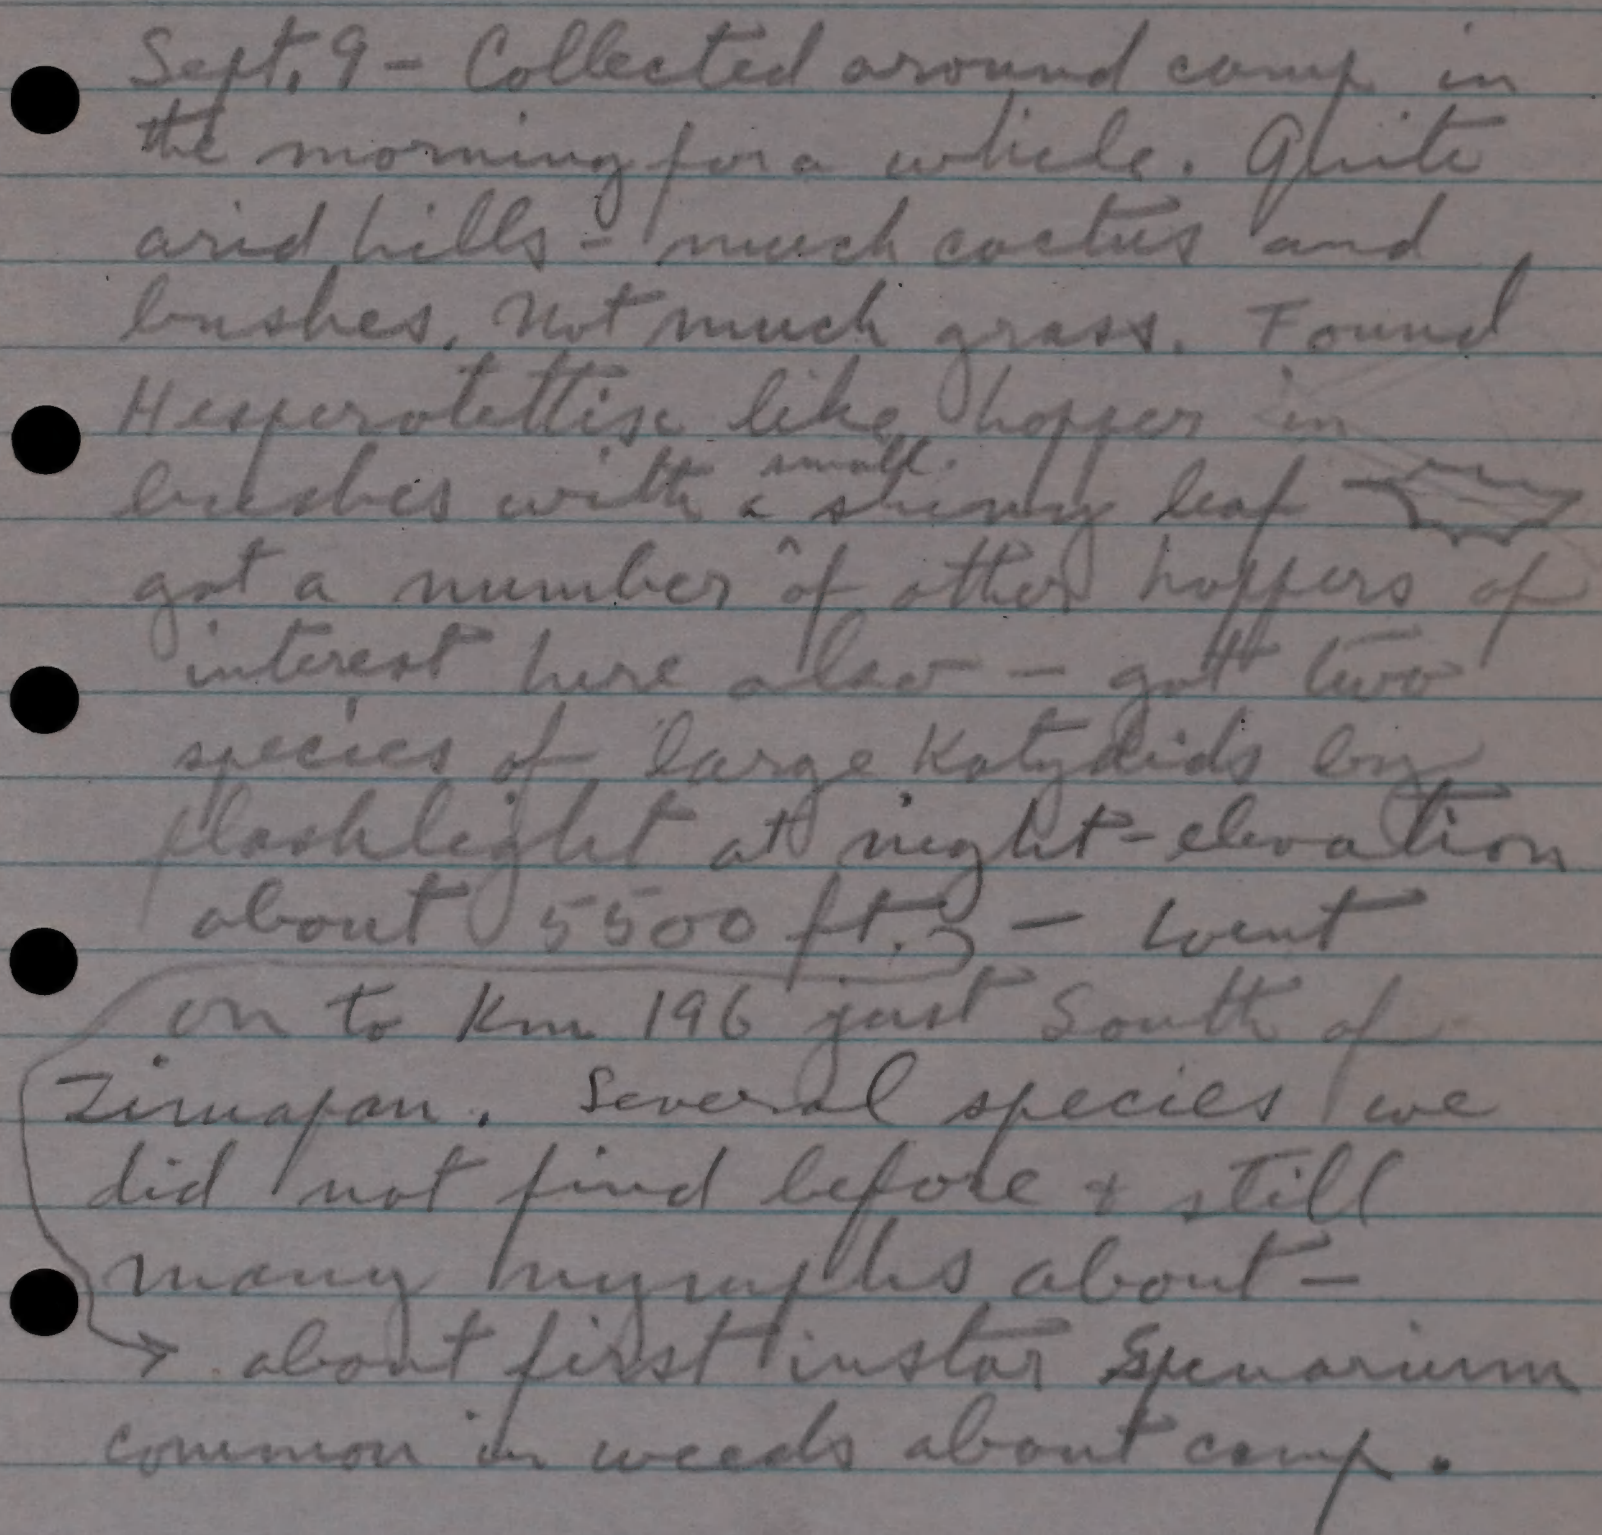 Sept. 9 - Collected around camp in
the morning for a while. Quite
arid hills - much cactus and
bushes. Not much grass. Found
Hesperotettix like hopper in
bushes with a small shinny leaf
got a number of other hoppers of
interest here also - got two
species of large Katydids by
flashlight at night - elevation
about 5500 ft. - went
on to Km 196 just South of
Zimapan. Several species we
did not find before & still
many nymphs about -
→ about first instar Spenarium
common in weeds about camp.